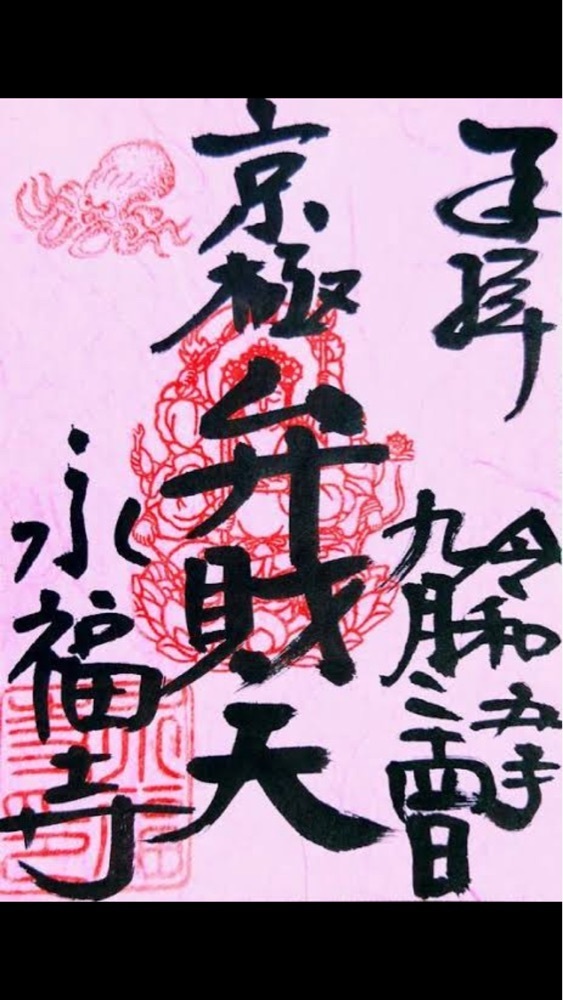 奉拝
令和五年
九月二十四日
京極
弁財天
永福寺